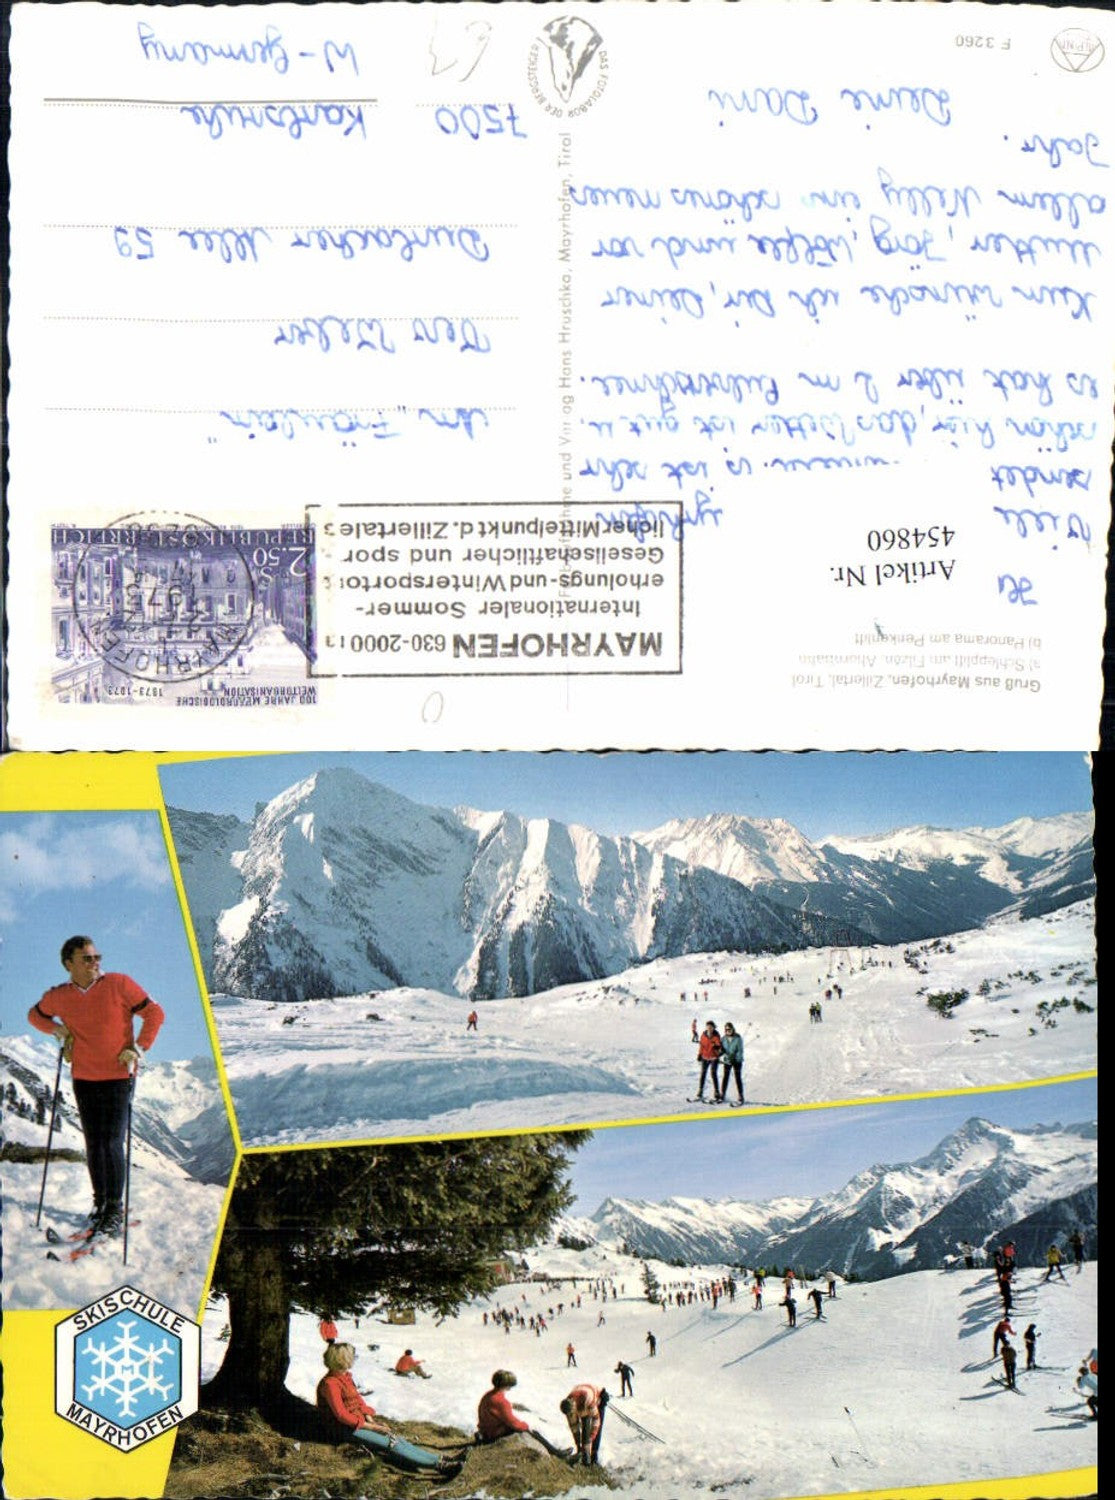 Gruß aus Mayrhofen, Zillertal, Tirol
a) Schlepplift am Filzen, Ahornbahn
b) Panorama am Penkenlift
Artikel Nr.
454860
Viele
sendet
schön hier, das Wetter ist gut u.
es hat über 2 m Pulverschnee.
Nun wünsche ich Dir, Deiner
Mutter, Jörg, Wölfle und vor
allem Nelly ein schönes neues
Jahr.
Deine Dani
F 3260
ALPINA
DAS FOTOLABOR DER BERGSTEIGER
Hans Hruschka, Mayrhofen, Tirol
MAYRHOFEN 630-2000 m
Internationaler Sommer-
erholungs-und Wintersportort
Gesellschaftlicher und spor
licher Mittelpunkt d. Zillertales
100 JAHRE METEOROLOGISCHE
WELTORGANISATION
1873-1973
S 2.50
REPUBLIK ÖSTERREICH
MAYRHOFEN
1973
An "Fräulein"
Weber
Durlacher Allee 59
7500 Karlsruhe
W-Germany
SKISCHULE
M
MAYRHOFEN